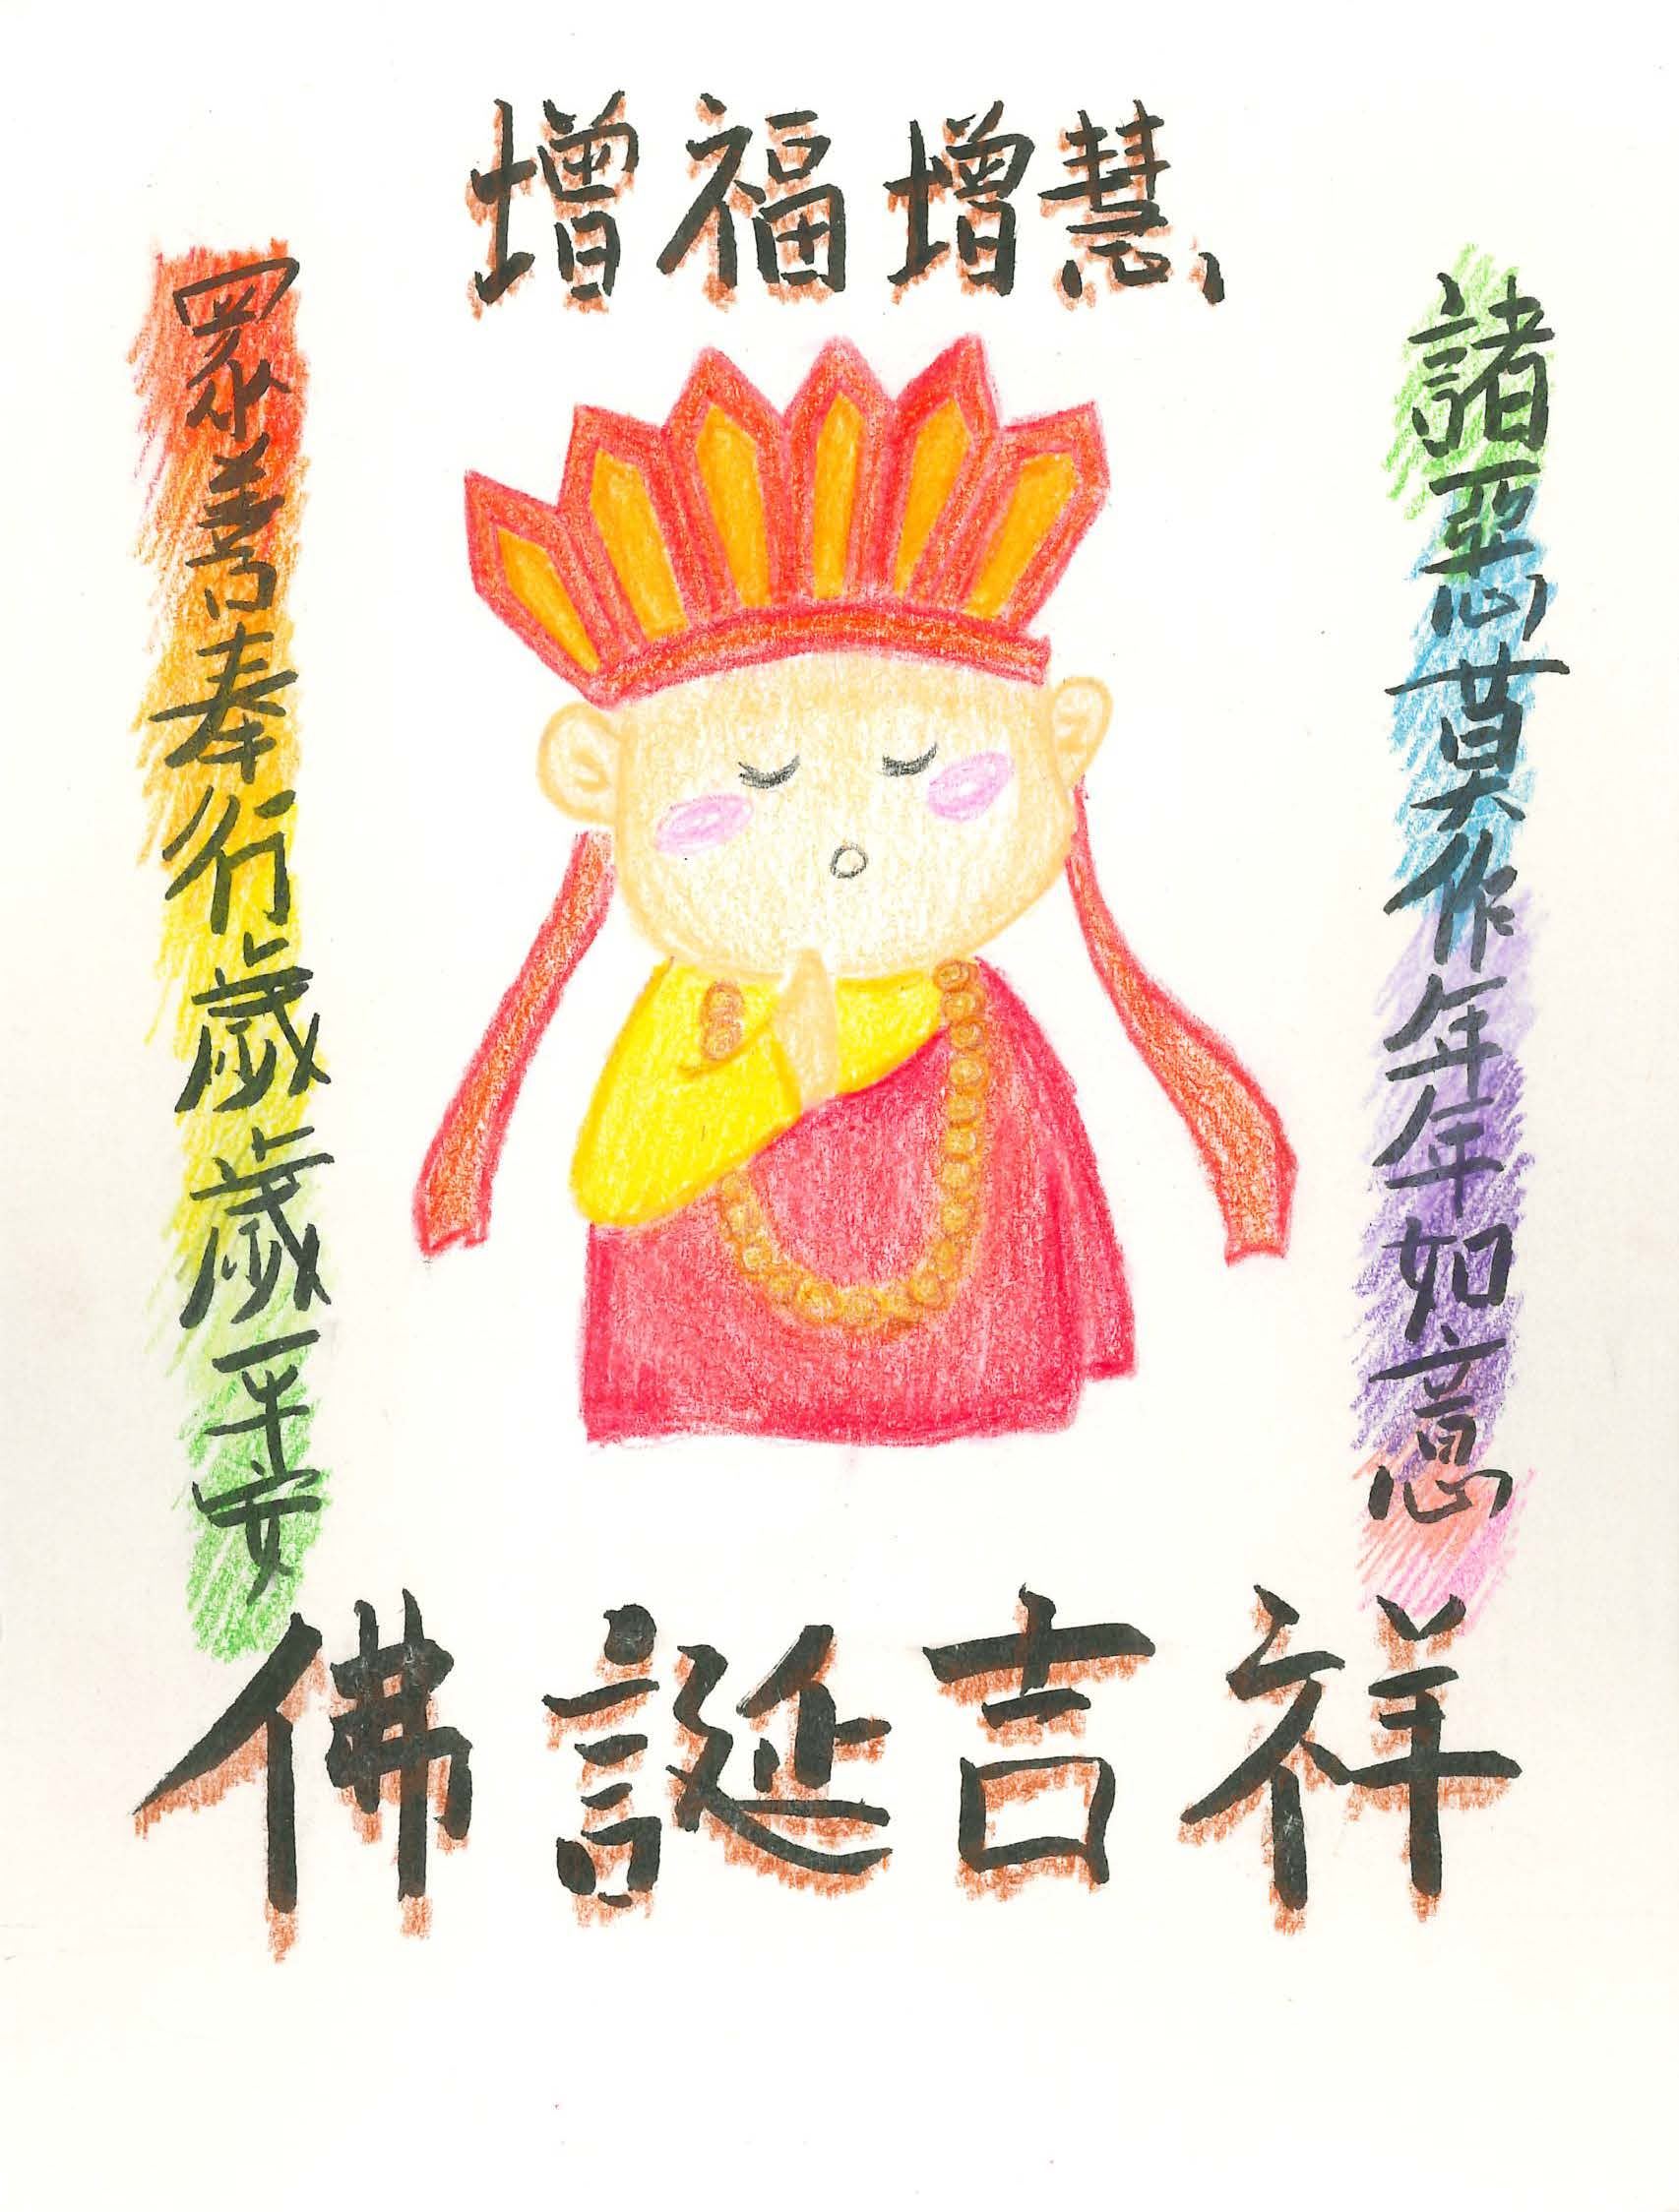 增福增慧
諸惡莫作年年如意
眾善奉行歲歲平安
佛誕吉祥